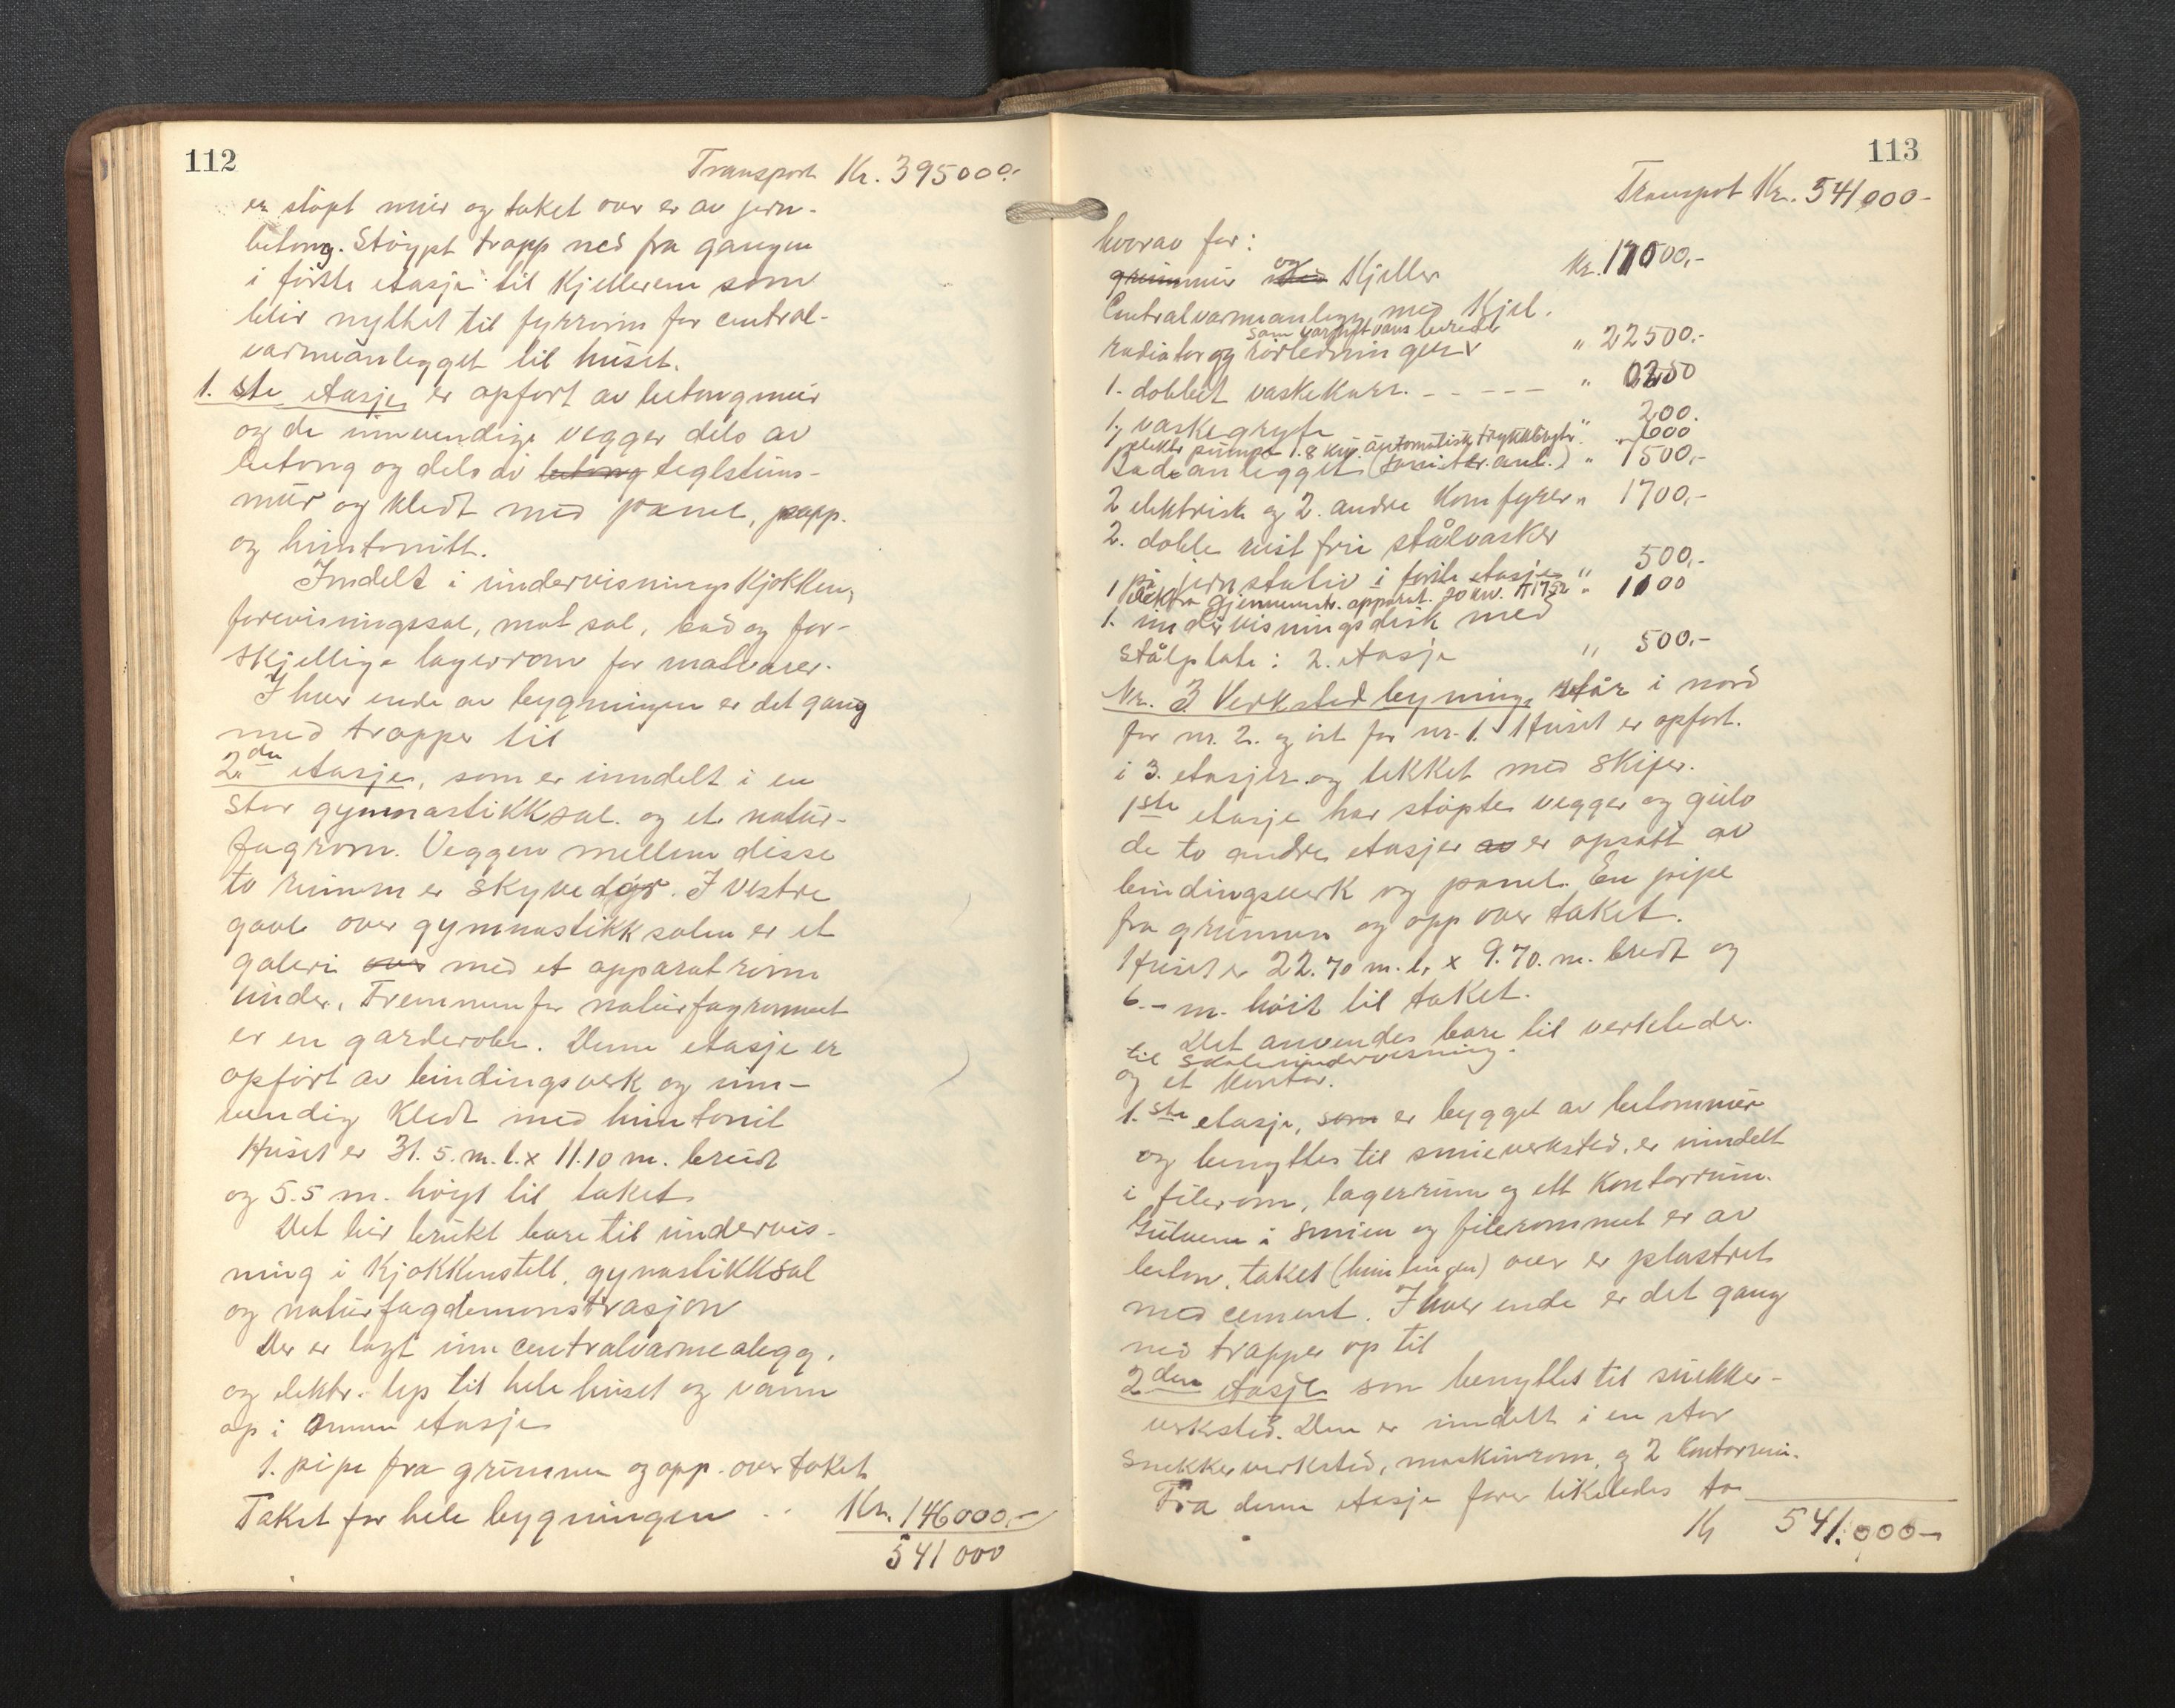 112
Transport Kr. 395000.-
er støpt mur og taket over er av jern-
betong. Støypt trapp ned fra gangen
i første etasje til Kjelleren som
blir nyttet til fyrrom for central-
varmeanlegget til huset.
1. ste etasje er opført av betongmur
og de innvendige vegger dels av
betong og dels av betong teglstens-
mur og kledt med panel, papp.
og huntonitt.
Inndelt i undervisningskjøkken,
forevisningssal, mat sal, bad og for-
skjellige lagerrom for matvarer.
I hver ende av bygningen er det gang
med trapper til
2.den etasje, som er inndelt i en
stor gymnastikksal. og et natur-
fagrom. Veggen mellem disse
to rumm er skyvedør. I vestre
gavl over gymnastikksalen er et
galeri over med et apparatromm
under. Fremmenfor naturfagrommet
er en garderobe. Denne etasje er
opført av bindingsverk og inn-
vendig kledt med huntonit
Huset er 31.5. m. l. x 11.10 m. bredt
og 5.5 m. høyt til taket.
Det blir brukt bare til undervis-
ning i Kjøkkenstell, gynastikksal
og naturfagdemonstrasjon
Der er lagt inn centralvarmealegg.
og elektr. lys til hele huset og vann
op i annen etasje
1. pipe fra grunnen og opp. over taket
Takst for hele bygningen .. Kr. 146000.-
541 000
113
Transport Kr. 541000-
hvorav for:
grunnmur med og Kjeller Kr. 17000.-
Centralvarmeanlegg med Kjel.
som varmtvans bereder
radiator og rørledninger " 22500.-
1. dobbelt vaskekarr. - - - - - "
1. vaskegryte " 200.
1 elektr. pumpe 1.8 kw. automatisk trykkbryter " 600
Badeanlegget (sanitær. anl.) " 1500.-
2 elektrisk og 2. andre Komfyrer " 1700.-
2. doble rust frie stålvasker
på jernstativ i første etasje " 500.-
1 elektr. gjennemstr. apparat. 20 kw. " 1100
1. undervisningsdisk med
stålplate: 2. etasje " 500.-
Nr. 3 Verkstedbyning, står i nord
for nr. 2. og øst for nr. 1. Huset er opført.
i 3. etasjer og tekket med skifer.
1ste etasje har støpte vegger og gulv
de to andre etasjer av er opsatt av
bindingsverk og panel. En pipe
fra grunnen og opp over taket.
Huset er 22.70 m. l. x 9.70. m. bredt og
6.- m. høit til taket.
Det anvendes bare til verksteder.
til skoleundervisning.
og et kontor.
1.ste etasje, som er bygget av betommur
og benyttes til smieverksted, er inndelt
i filerom, lagerrum og ett Kontorrum.
Gulvene i smien og filerommet er av
beton, taket (himlingen) over er plastret
med cement. I hver ende er det gang
med trapper op til
2den etasje som benyttes til snekker-
verksted. Den er inndelt i en stor
snekkerverksted, maskinrom, og 2 Kontorrum.
Fra denne etasje fører likeledes to
Kr 541.000-